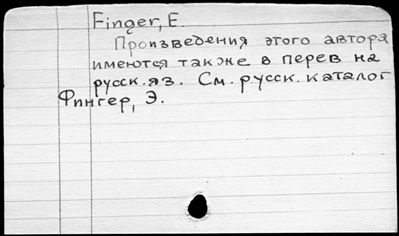 Finger, E.
Произведения этого автора
имеются также в перев на
русск. яз. См. русск. каталог
Фингер, Э.